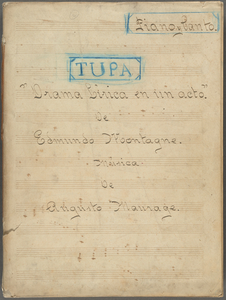 Piano y Canto.
TUPA
"Drama Lírica en un acto."
De
Edmundo Montagne.
Música
De
Augusto Maurage.